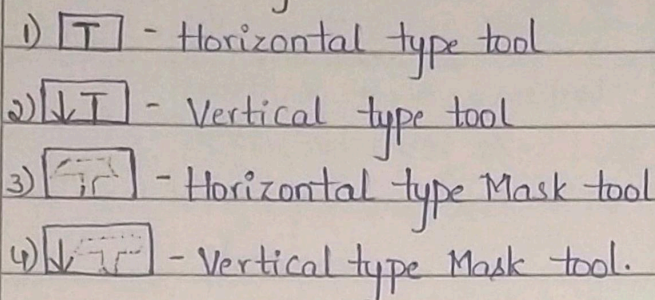 1) T - Horizontal type tool
2) ↓T - Vertical type tool
3) T - Horizontal type Mask tool
4) ↓T - Vertical type Mask tool.